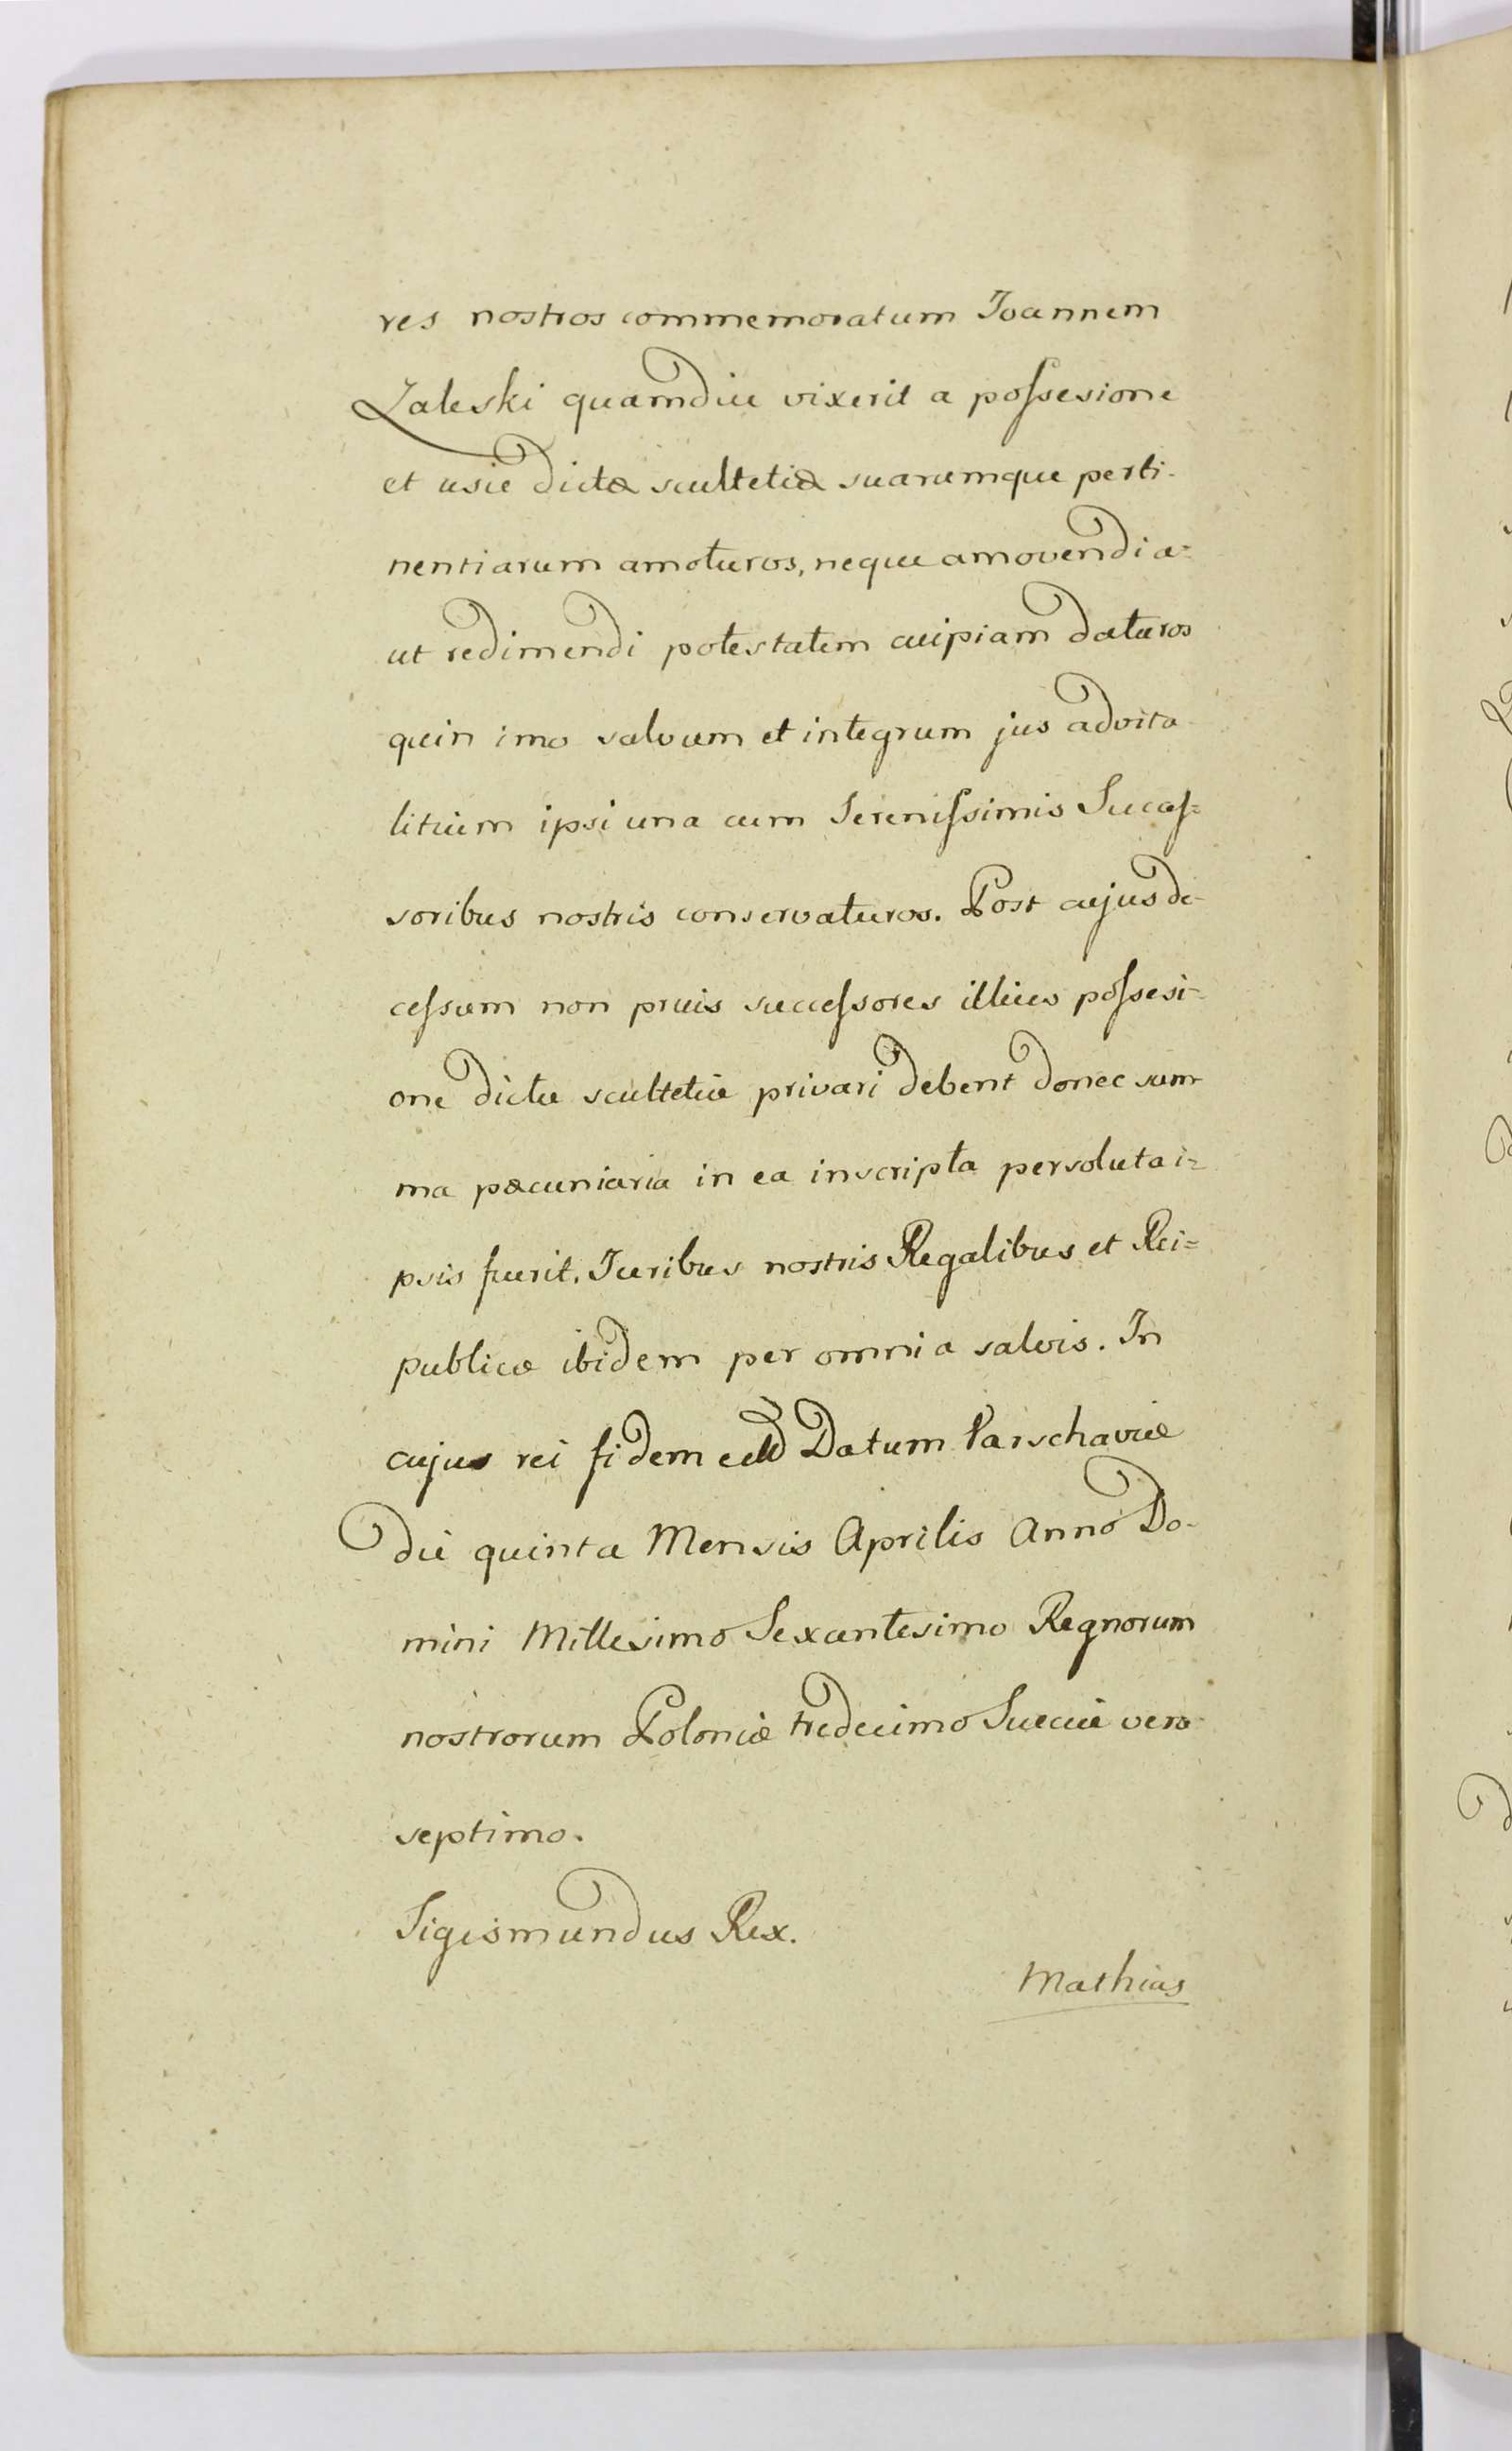 res nostros commemoratum Joannem
Zaleski quamdiu vixerit a poſsesione
et usu dictæ scultetiæ suarumque perti-
nentiarum amoturos, neque amovendi a=
ut redimendi potestatem cuipiam daturos
quin imo salvum et integrum jus advita-
litium ipsi una cum Sereniſsimis Succeſ=
soribus nostris conservaturos. Post cujus de-
ceſsum non prius succeſsores illius poſsesi-
one dictæ scultetiæ privari debent donec sum-
ma pæcuniaria in ea inscripta persoluta i=
psis fuerit. Juribus nostris Regalibus et Rei=
publicæ ibidem per omnia salvis. In
cujus rei fidem Datum Varschaviæ
die quinta Mensis Aprilis Anno Do-
mini Millesimo Sexcentesimo Regnorum
nostrorum Poloniæ tredecimo Sueciæ vero
septimo.
Sigismundus Rex.
Mathias